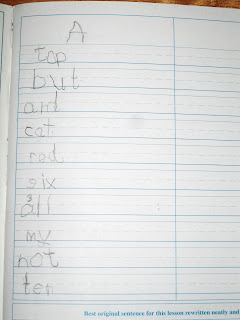 A
top
but
and
cat
red
six
3
all
my
not
ten
Best original sentence for this lesson rewritten neatly and